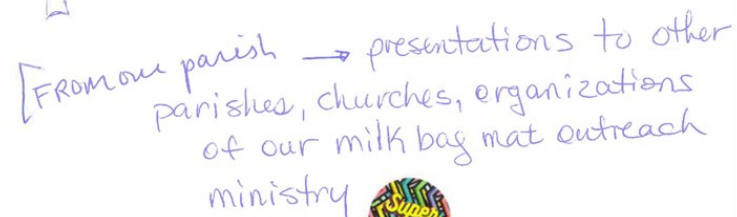 [FROM our parish → presentations to other
parishes, churches, organizations
of our milk bag mat outreach
ministry
Super